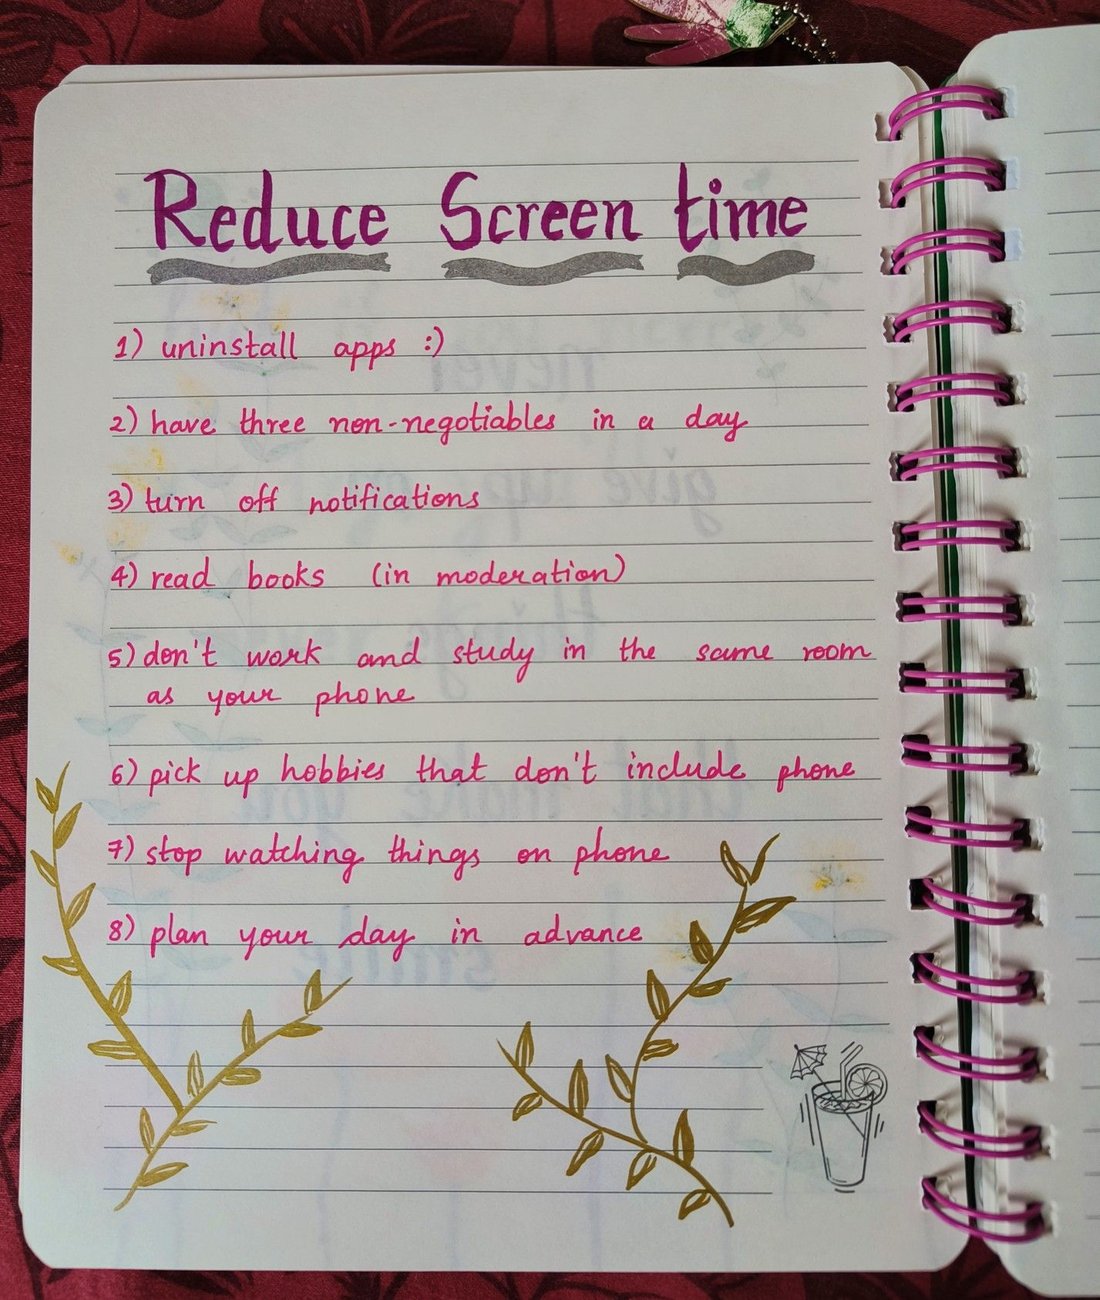 Reduce Screen time
1) uninstall apps :)
2) have three non-negotiables in a day
3) turn off notifications
4) read books (in moderation)
5) don't work and study in the same room
as your phone
6) pick up hobbies that don't include phone
7) stop watching things on phone
8) plan your day in advance
never
give up on
things
that make you
smile